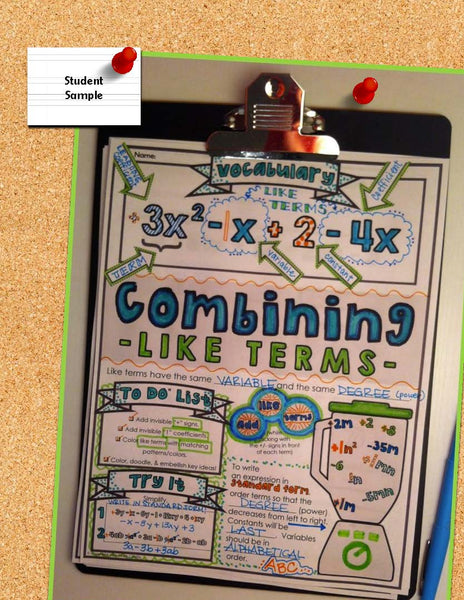 Student
Sample
Name:
Vocabulary
LEADING
LIKE
TERMS
coefficient
+3x² -1x + 2 - 4x
TERM
variable
constant
Combining
-LIKE TERMS-
Like terms have the same VARIABLE and the same DEGREE (power)
To Do List
Add invisible "+" signs.
Add invisible "1" coefficients.
Color like terms with matching
patterns/colors.
Color, doodle, & embellish key ideas!
add like terms
with
the +/- signs in front
of each term)
2m +2 +8
-35m
-6
-5mn
To write
an expression in
standard form
order terms so that the
DEGREE (power)
decreases from left to right.
Constants will be
LAST. Variables
should be in
ALPHABETICAL
order.
ABC
Try It
Simplify
WRITE IN STANDARD FORM!
1
-x - 8y + 13xy + 3
2
3a - 3b + 3ab